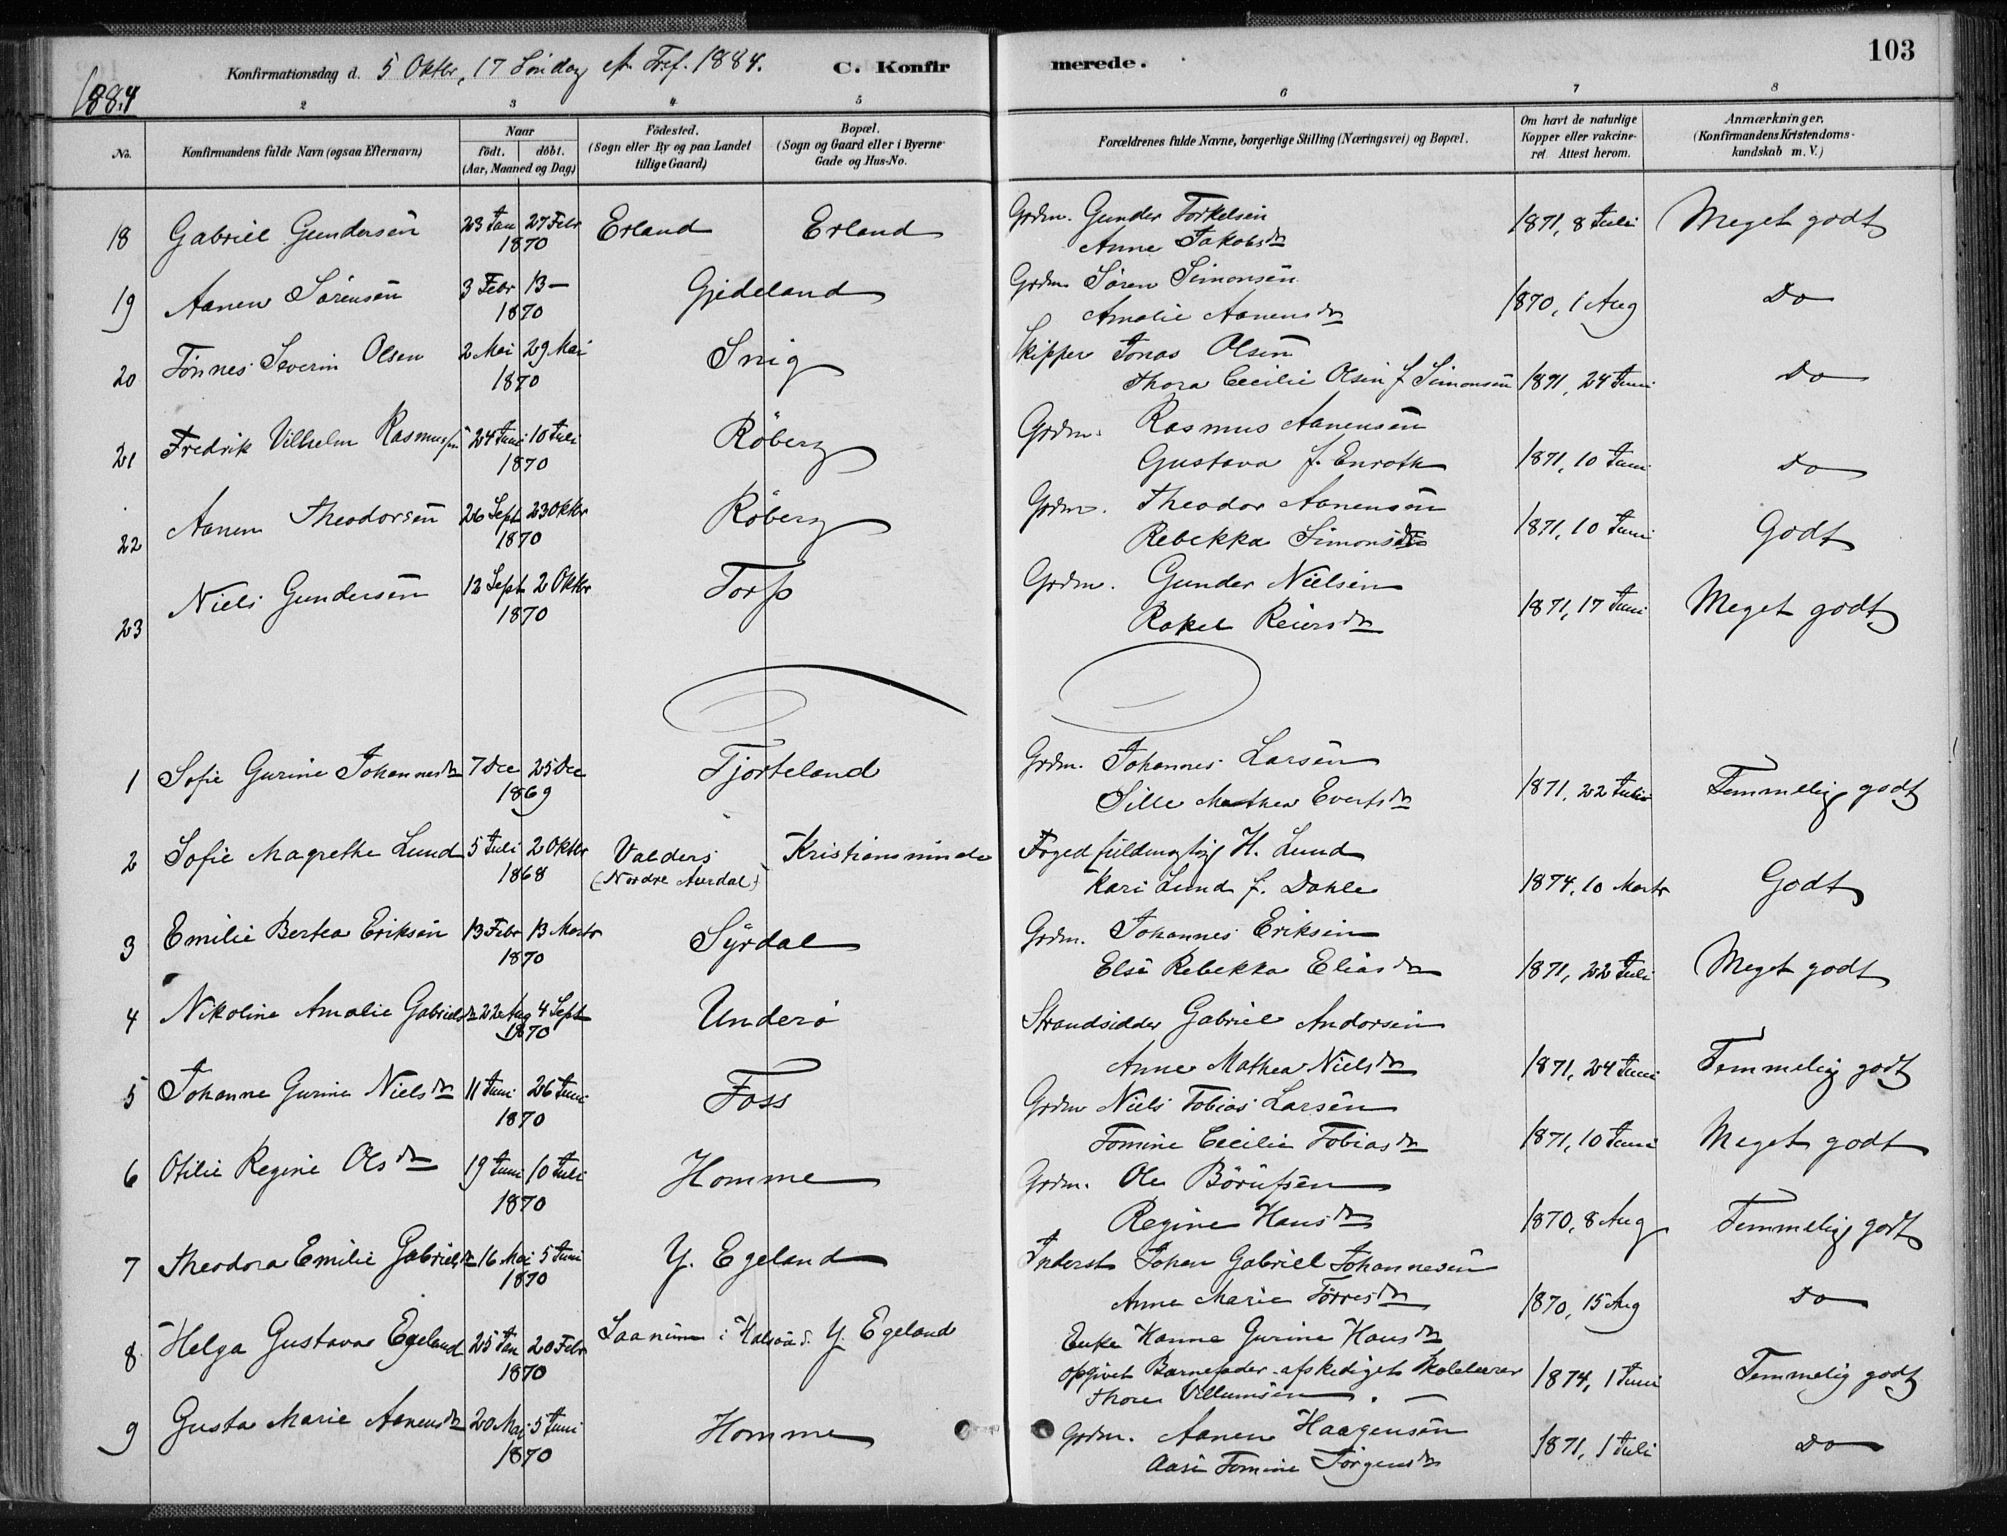 1884
Konfirmationsdag d. 5 Oktbr, 17 Søndag e. Tref. 1884. C. Konfirmerede. 103
2 3 4 5 6 7 8
No. Konfirmandens fulde Navn (ogsaa Efternavn) Naar født. døbt. (Aar, Maaned og Dag.) Fødested. (Sogn eller By og paa Landet tillige Gaard.) Bopæl. (Sogn og Gaard eller i Byerne Gade og Hus-No. Forældrenes fulde Navne, borgerlige Stilling (Næringsvei) og Bopæl. Om havt de naturlige Kopper eller vakcineret. Attest herom. Anmærkninger. (Konfirmandens Kristendomskundskab m. V.)
18 Gabriel Gundersen 23 Jan 27 Febr 1870 Erland Erland Grdm. Gunder Torkelsen 1871, 8 Juli Meget godt
Anne Jakobsdr
19 Aanen Sørensen 3 Febr 13 — 1870 Gjedeland Grdm. Søren Simonsen 1870, 1 Aug Do
Amalie Aanensdr
20 Tønnes Severin Olsen 2 Mai 29 Mai 1870 Snig Skipper Jonas Olsen
Thora Cecilie Olsen f. Simonsen 1871, 24 Juni Do
21 Fredrik Vilhelm Rasmussen 24 Juni 10 Juli 1870 Røberg Grdm. Rasmus Aanensen
Gustava f. Enroth 1871, 10 Juni Do
22 Aanen Theodorsen 26 Sept 23 Oktbr 1870 Røberg Grdm. Theodor Aanensen
Rebekka Simonsdr 1871, 10 Juni Godt
23 Niels Gundersen 12 Sept 2 Oktbr 1870 Torp Grdm. Gunder Nielsen
Rakel Reiersdr 1871, 17 Juni Meget godt
1 Sofie Gurine Johannesdr 7 Dec 25 Dec 1869 Fjorteland Grdm. Johannes Larsen
Sille Mathea Evertsdr 1871, 22 Juli Temmelig godt
2 Sofie Magrethe Lund 5 Juli 2 Oktbr 1868 Valders (Nordre Aurdal) Kristiansminde Foged fuldmægtig H. Lund
Kari Lund f. Dahle 1874, 10 Marts Godt
3 Emilie Bertea Eriksen 13 Febr 13 Marts 1870 Syrdal Grdm. Johannes Eriksen
Else Rebekka Eliasdr 1871, 22 Juli Meget godt
4 Nikoline Amalie Gabrielsdr 22 Aug 4 Sept 1870 Underø Strandsidder Gabriel Andersen
Anne Mathea Nielsdr 1871, 24 Juni Temmelig godt
5 Johanne Gurine Nielsdr 11 Juni 26 Juni 1870 Foss Grdm Niels Tobias Larsen
Tomine Cecilie Tobiasdr 1871, 10 Juni Meget godt
6 Otilie Regine Olsdr 19 Juni 10 Juli 1870 Homme Grdm. Ole Børufsen
Regine Hansdr 1870, 8 Aug Temmelig godt
7 Theodora Emilie Gabrielsdr 16 Mai 5 Juni 1870 Y. Egeland Inderst Johan Gabriel Johannesen
Anne Marie Tørresdr 1870, 15 Aug Do
8 Helga Gustava Egeland 25 Jan 20 Febr 1870 Saanum i Halsaa S. Y. Egeland Enke Hanne Gurine Hansdr
opgivet Barnefader afskediget Skolelærer
Thore Villumsen 1874, 1 Juni Temmelig godt
9 Gusta Marie Aanensdr 20 Mai 5 Juni 1870 Homme Grdm. Aanen Haagensen
Aase Tomine Jørgensdr 1871, 1 Juli Do